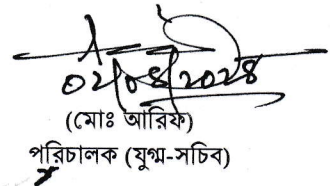 ০২/০৪/2024
(মোঃ আরিফ)
পরিচালক (যুগ্ম-সচিব)